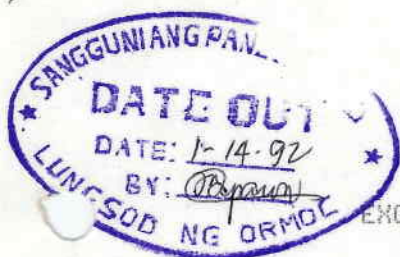 SANGGUNIANG PAN
DATE OUT
DATE: 1-14-92
BY:
LUNGSOD NG ORMOC
EXC